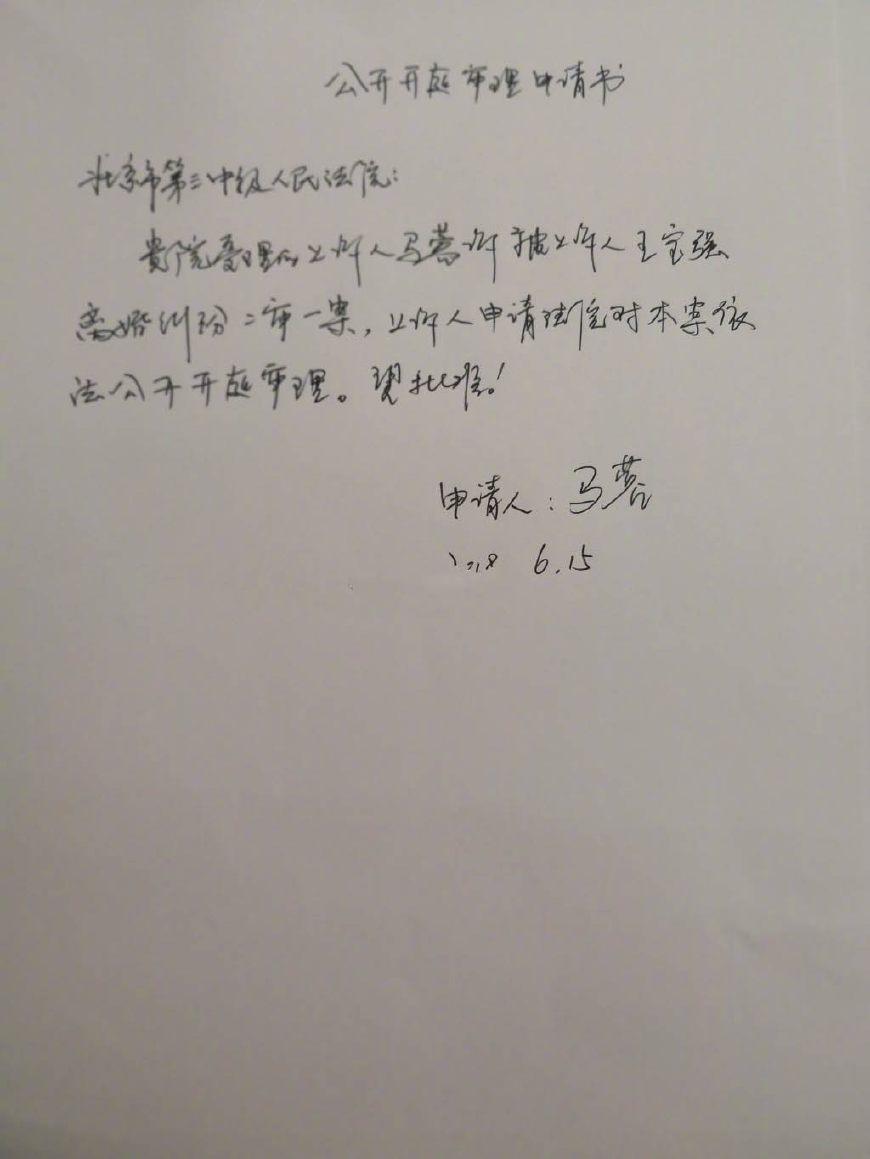 公开开庭审理申请书
北京市第三中级人民法院:
贵院受理的上诉人马蓉诉被上诉人王宝强
离婚纠纷二审一案,上诉人申请法院对本案依
法公开开庭审理。望批准!
申请人:马蓉
2018 6.15